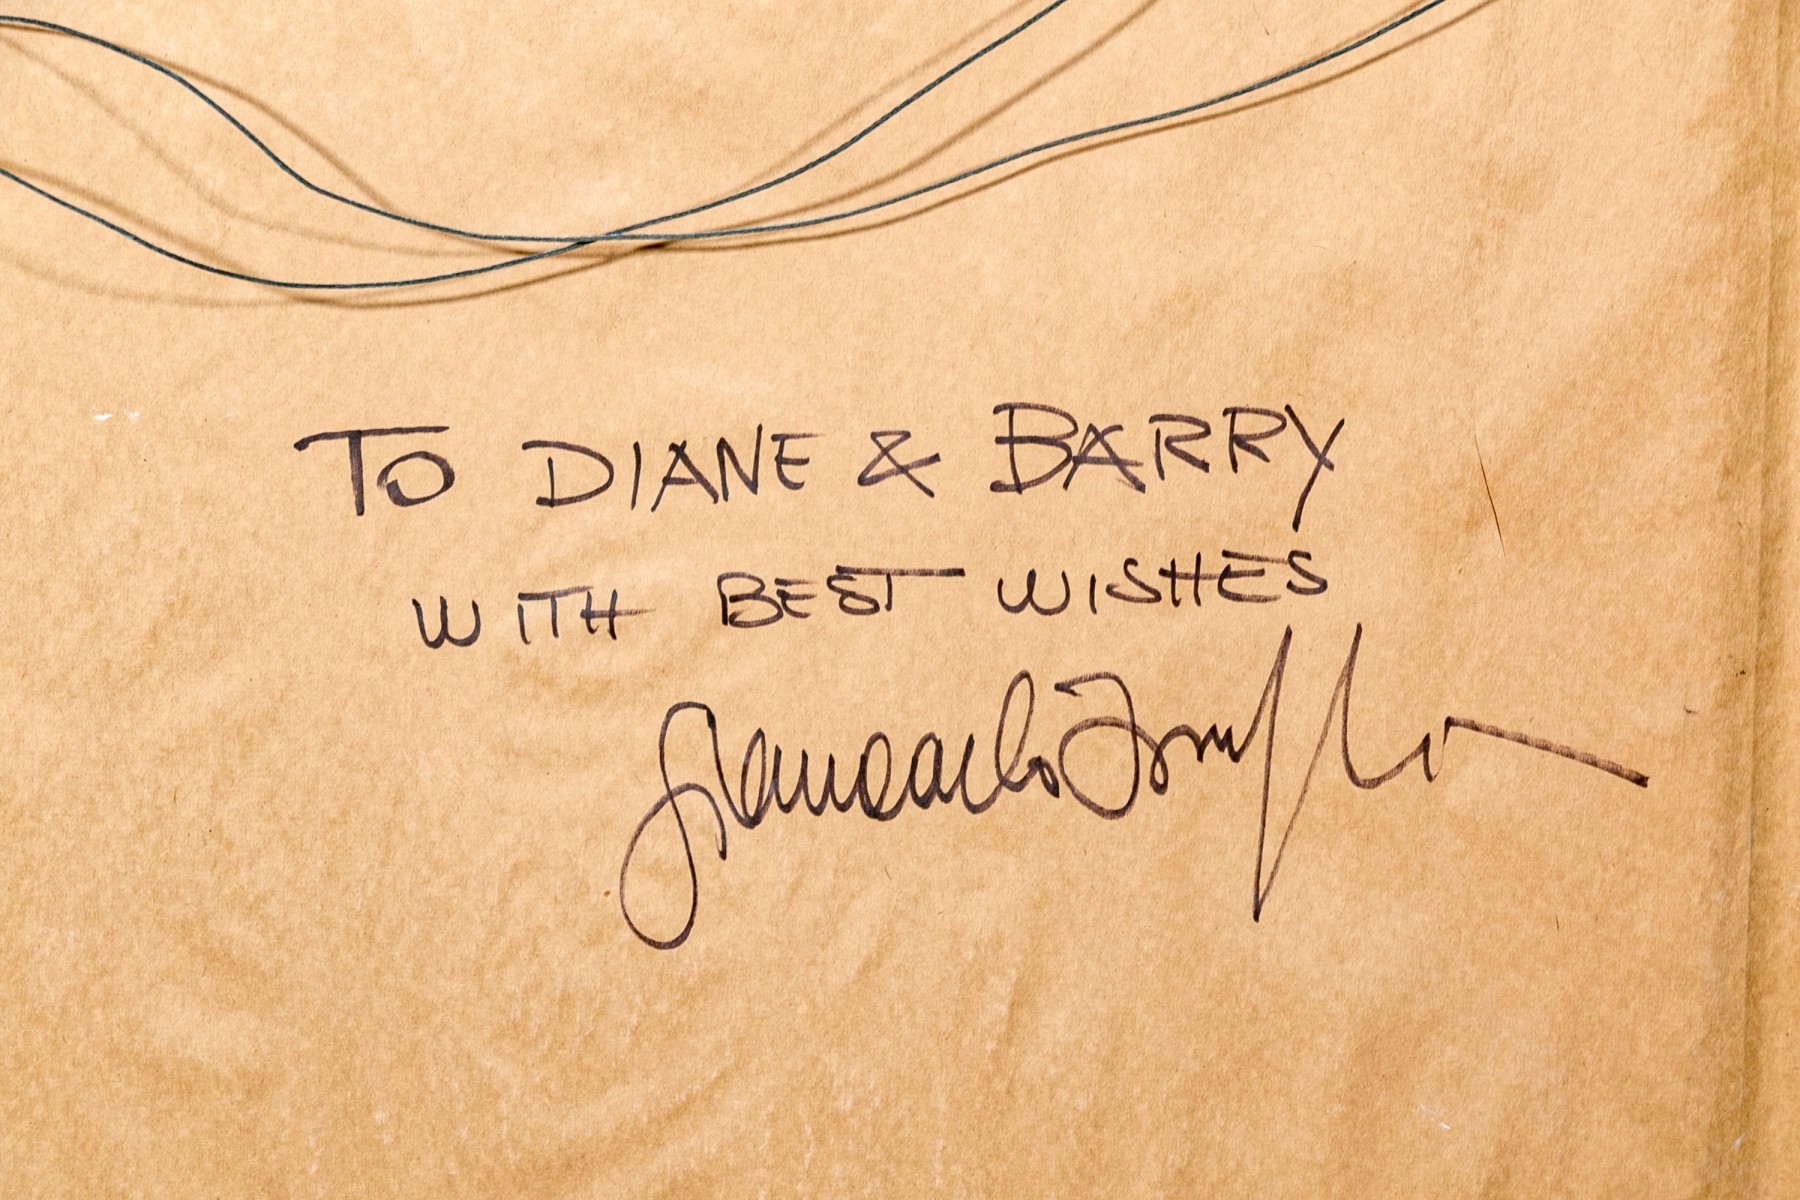 TO DIANE & BARRY
WITH BEST WISHES
Giancarlo